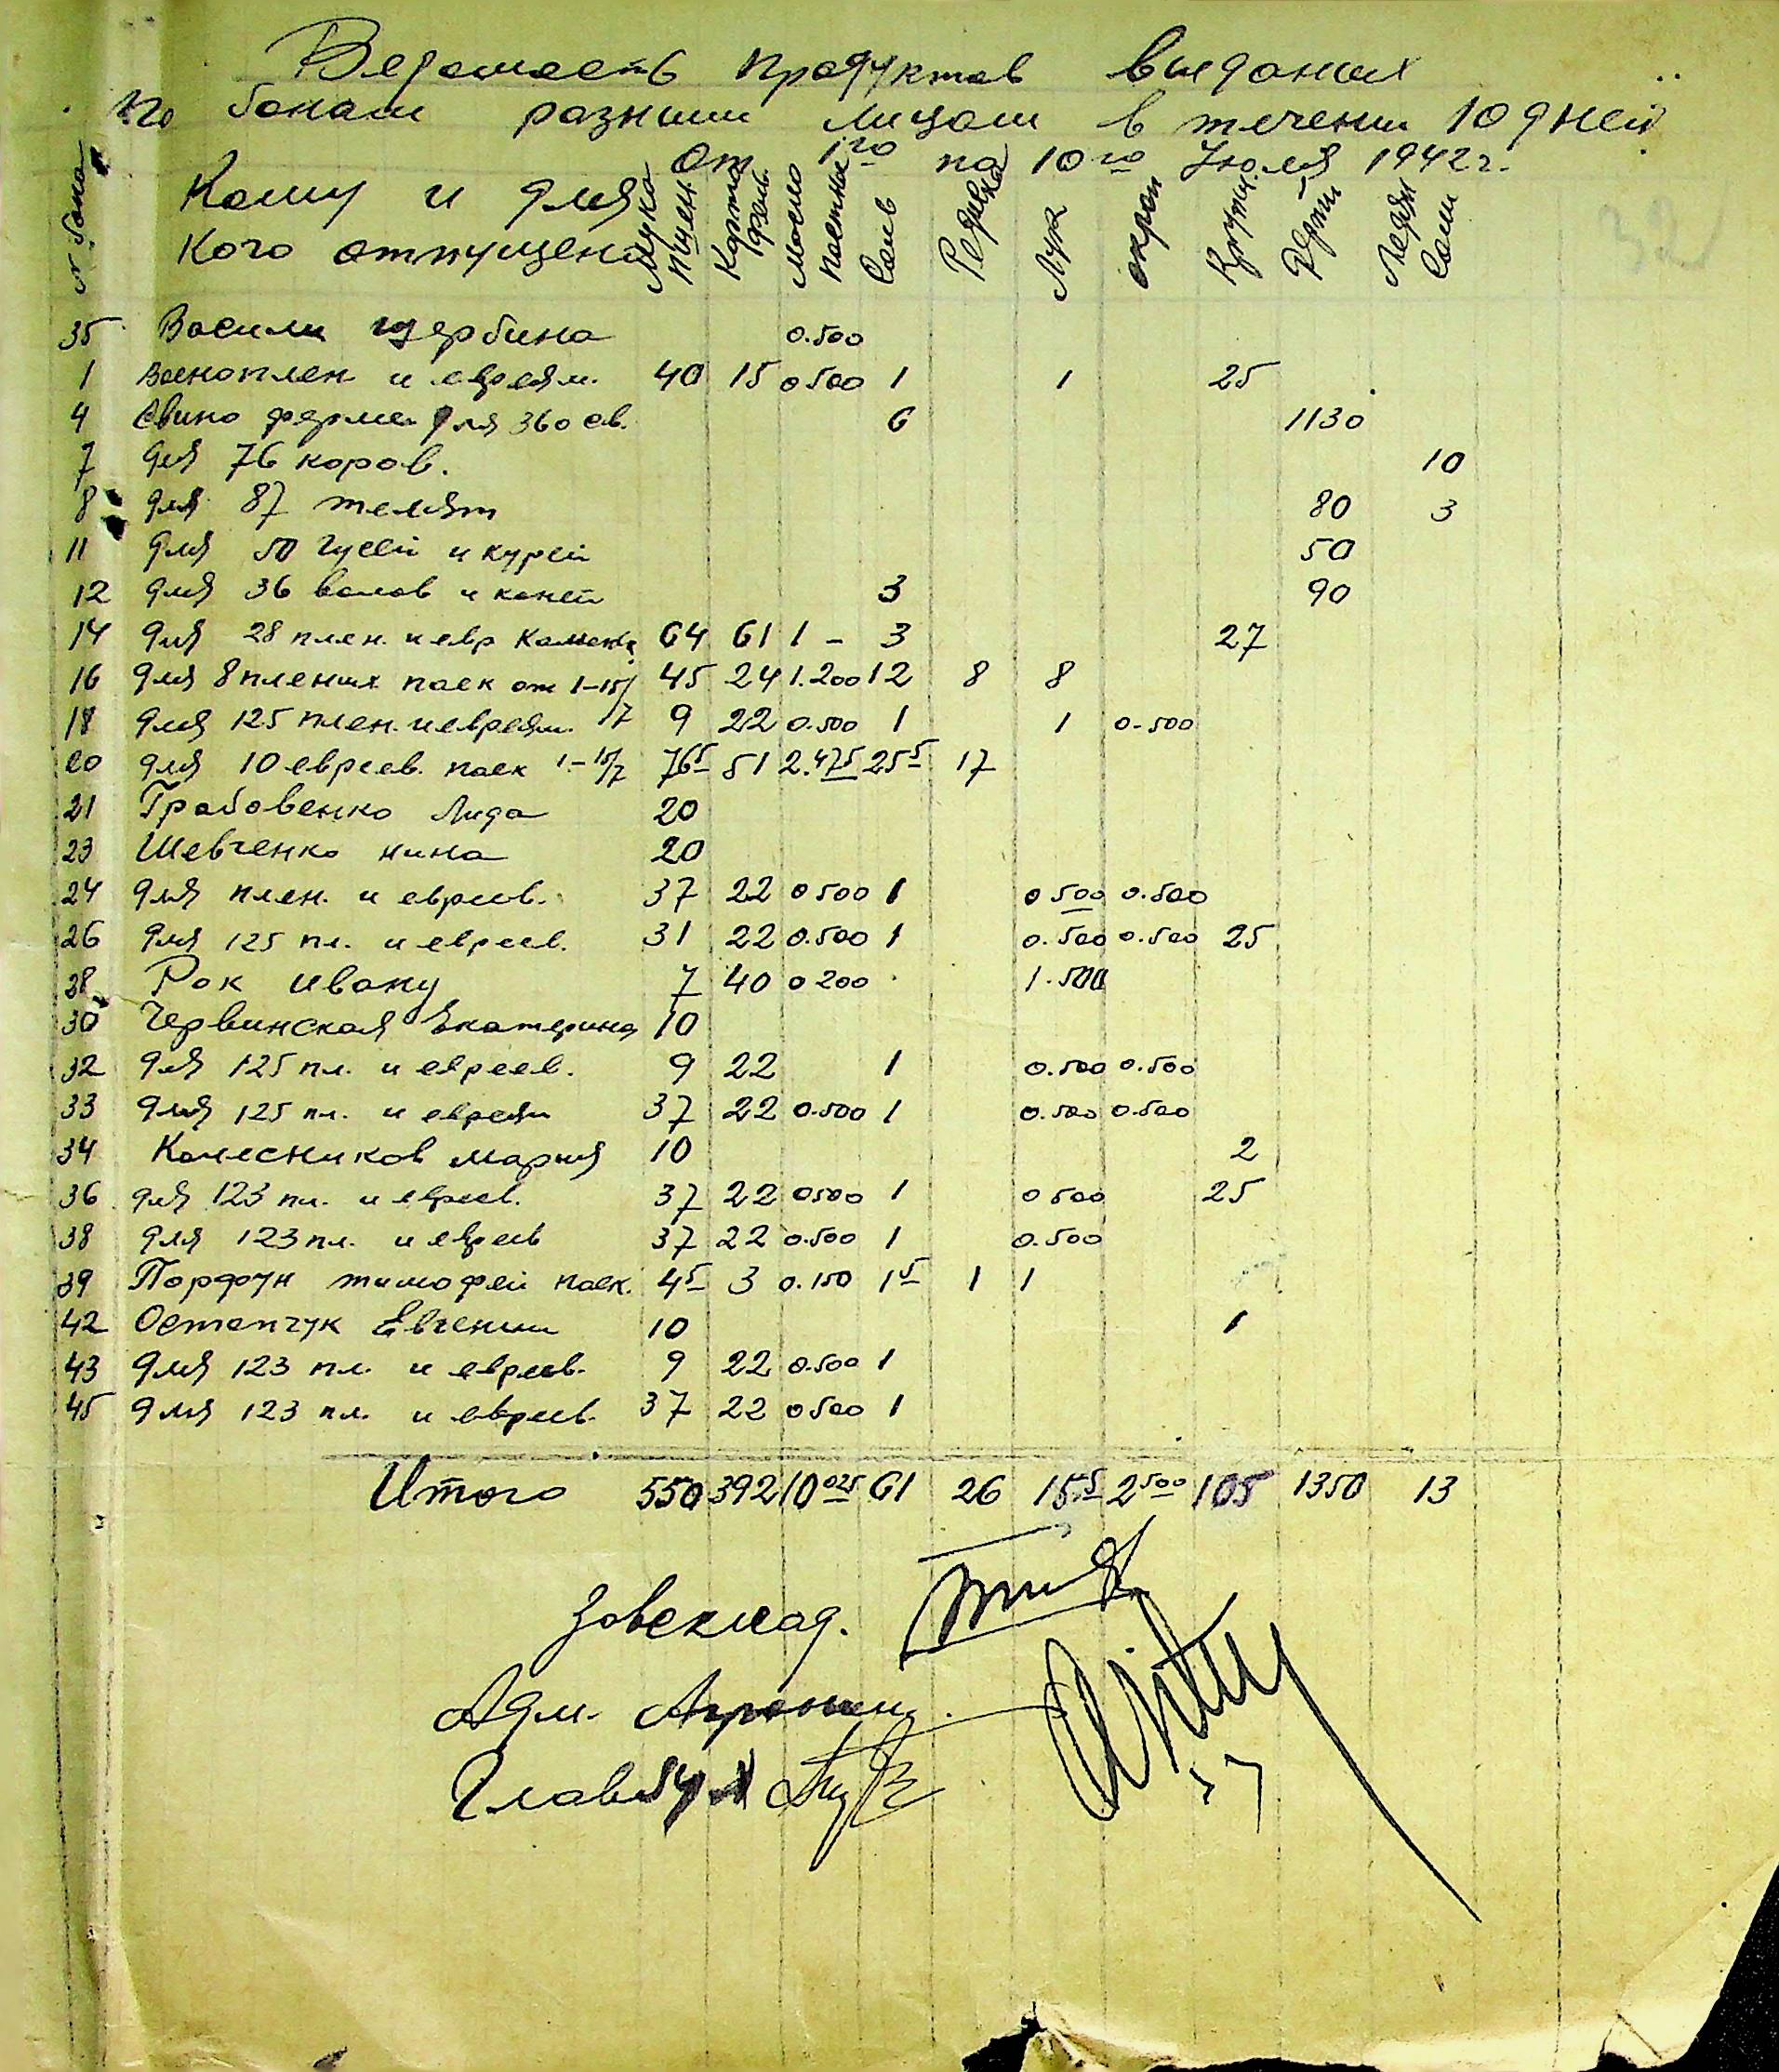 Ведомость продуктов выданих
по бонам разним лицам в течении 10 дней
От 1го по 10го Июля 1942 г.
№ бона Кому и для кого отпущено Мука пшен. Картофель Масло постный Соль Редиска Лук окроп Крупы Дерти Лезун соли
35 Васили Щербина 0.500
1 Военоплен и евреям. 40 15 0500 1 1 25
4 Свино ферме для 360 св. 6 1130
7 для 76 коров. 10
8 для 87 телят 80 3
11 для 50 гусей и курей 50
12 для 36 валов и коней 3 90
14 для 28 плен. и евр 64 61 1 - 3 27
16 для 8 плених паек от 1-15/7 45 24 1.200 12 8 8
18 для 125 плен. и евреям. 9 22 0.500 1 1 0-500
20 для 10 евреев. паек 1-15/7 76⁵ 51 2.475 25⁵ 17
21 Грабовенко Лида 20
23 Шевченко нина 20
24 для плен. и евреев. 37 22 0500 1 0500 0.500
26 для 125 пл. и евреев. 31 22 0.500 1 0.500 0.500 25
28 Рок ивану 7 40 0200 1.500
30 Червинская Екатерина 10
32 для 125 пл. и евреев. 9 22 1 0.500 0.500
33 для 125 пл. и евреям 37 22 0.500 1 0.500 0.500
34 Колесников мария 10 2
36 для 123 пл. и евреев. 37 22 0500 1 0500 25
38 для 123 пл. и евреев 37 22 0.500 1 0.500
39 Порфун тимофей паек. 4⁵ 3 0.150 1⁵ 1 1
42 Остапчук Евгении 10 1
43 для 123 пл. и евреев. 9 22 0.500 1
45 для 123 пл. и евреев. 37 22 0500 1
Итого 550 392 10 025 61 26 15⁵ 2 500 105 1350 13
Завсклад.
Адм. Агроном
Главбух
32